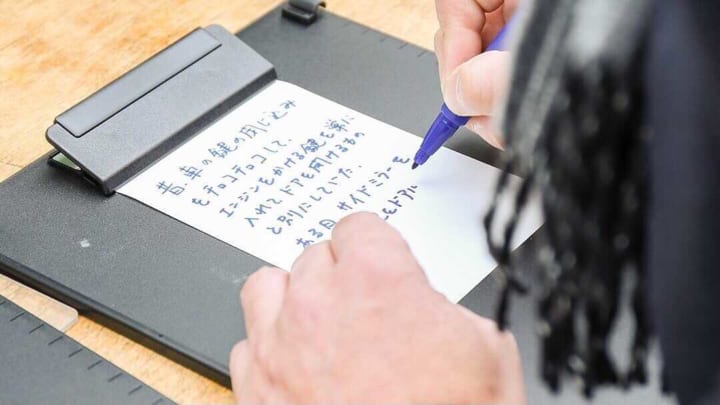 昔、車の鍵の閉じ込み
をチョコチョコして、
エンジンをかける鍵を車に
入れてドアを開けるもの
と別にしていた。
ある日、サイドミラーを
をドアル